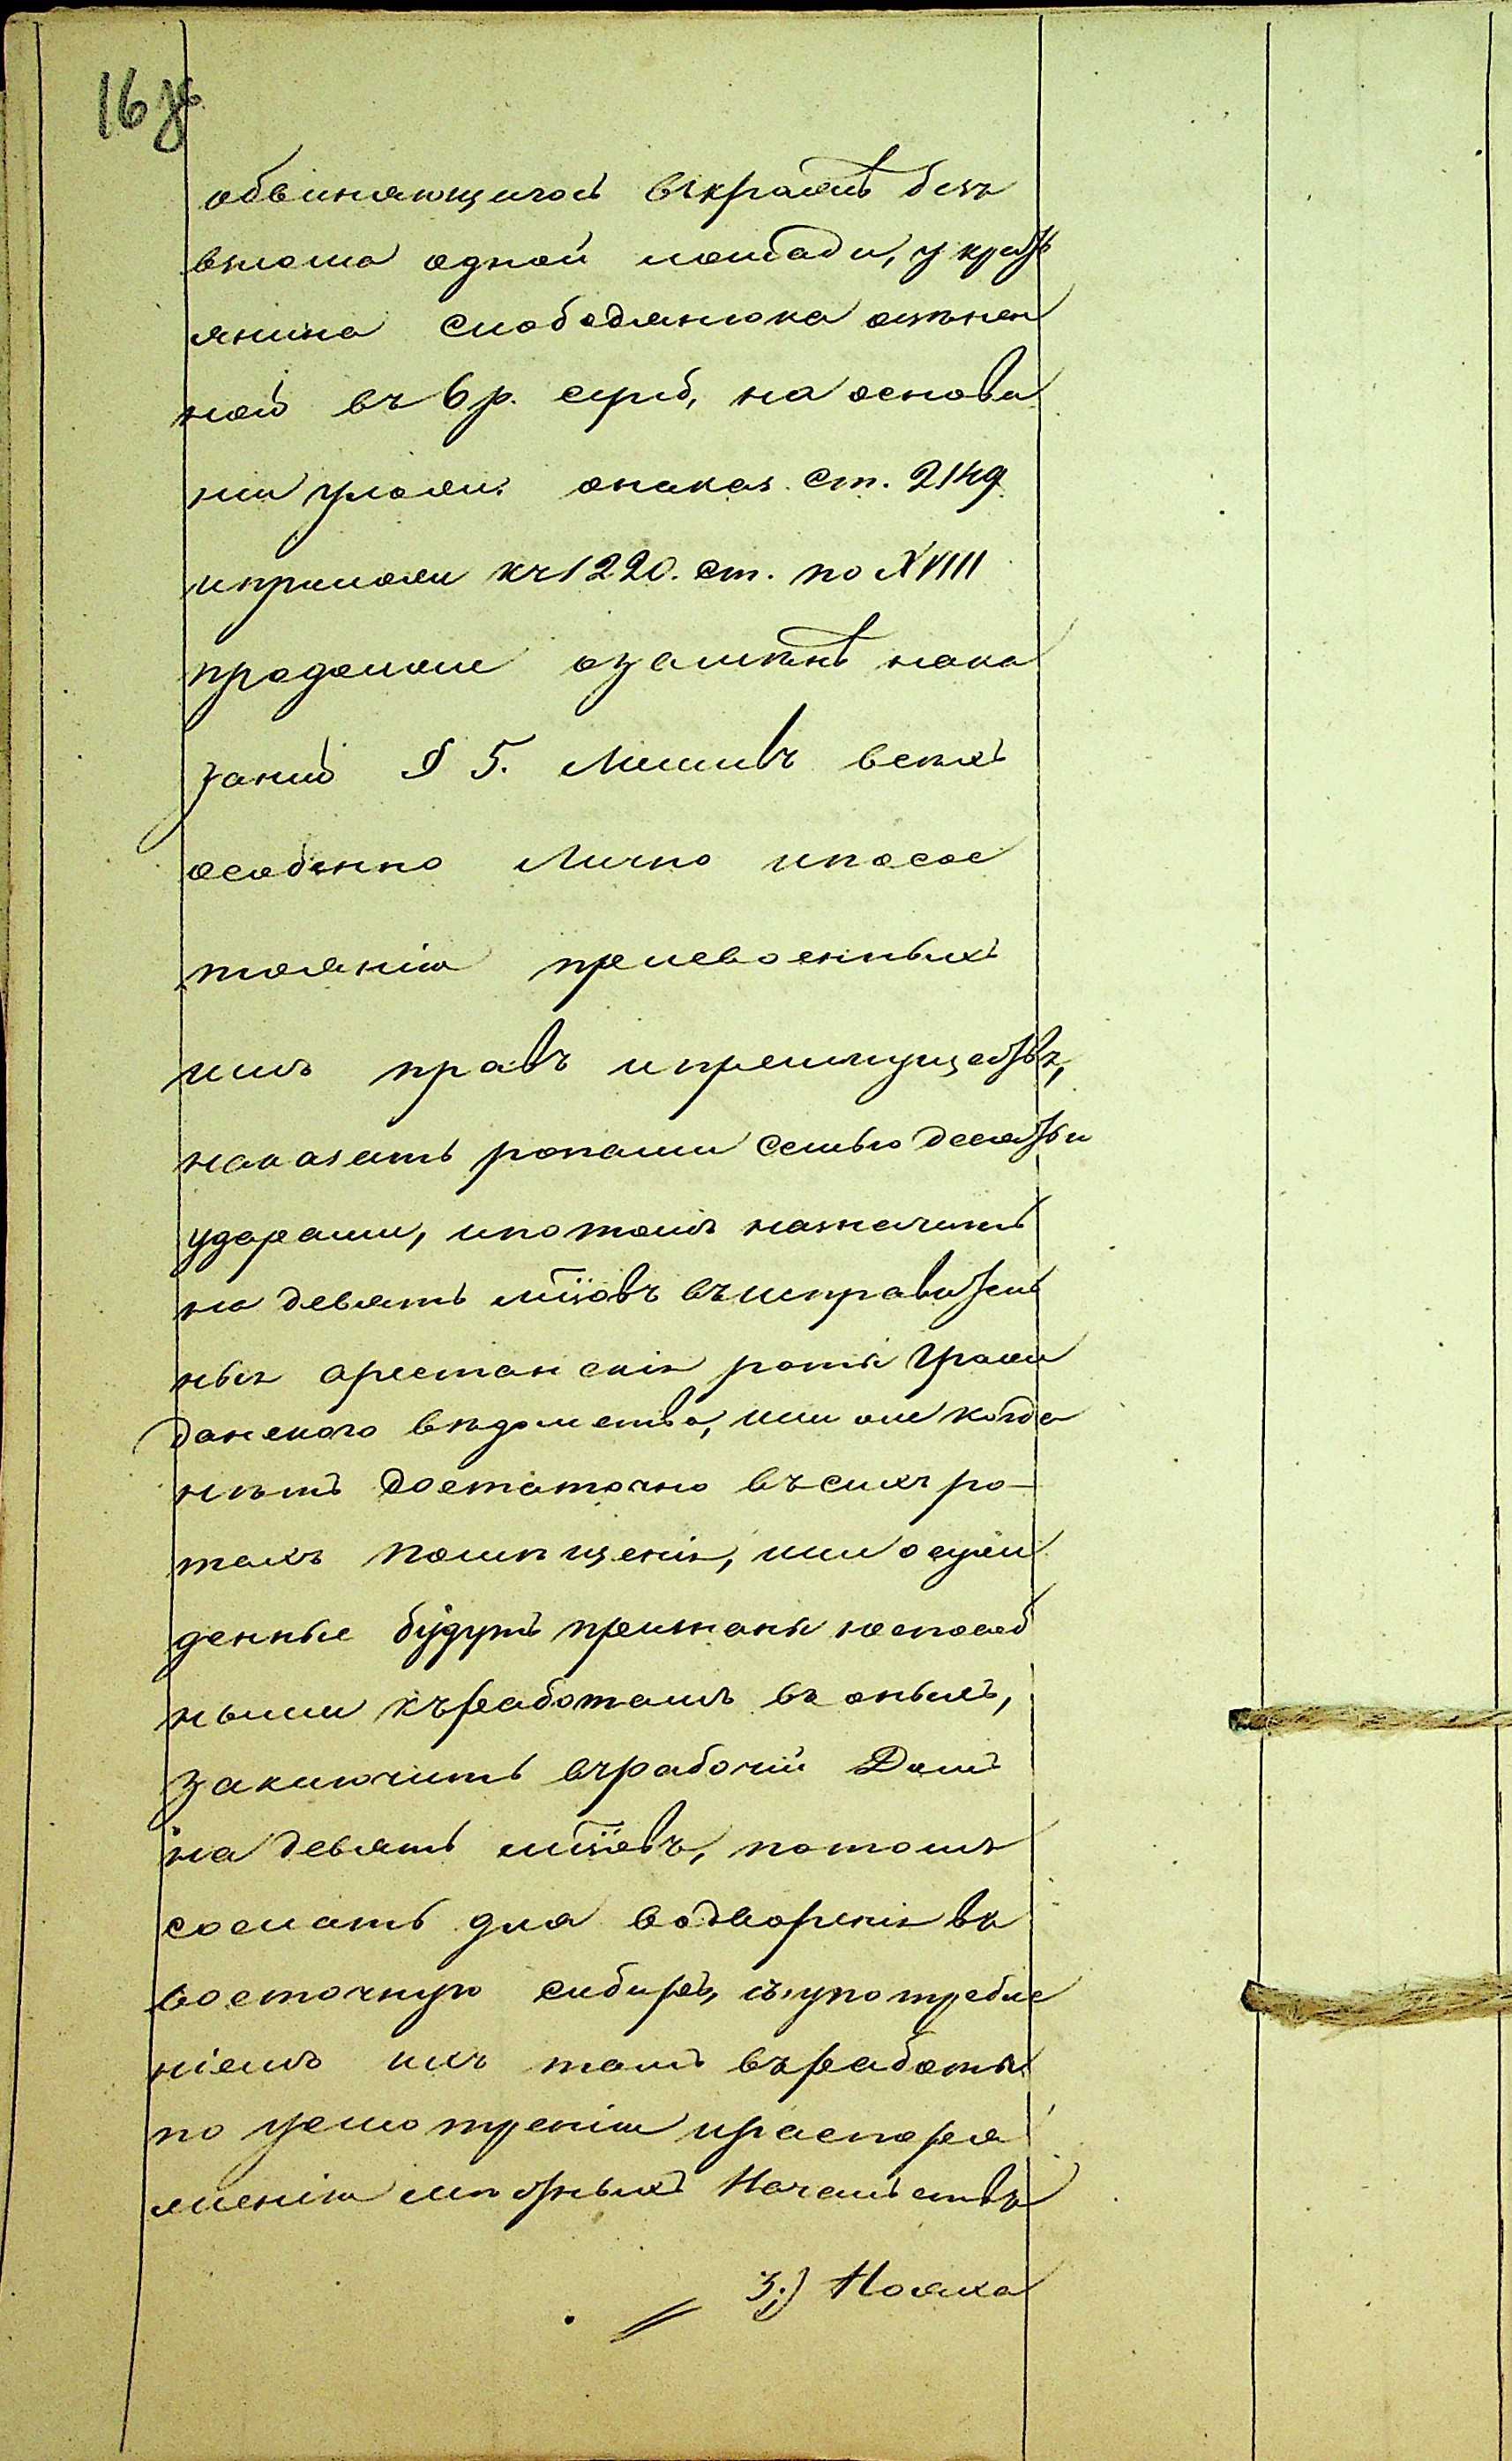 16 об
обвиняющагось въ кражѣ безъ
взлома одной лошади, у крѣсть
янина Слободянюка оцѣнен
ной въ 6 р. сереб, на основа
ніи улож. о наказ. ст. 2149
и прилож. къ 1220. ст. по XVIII
продолж. о замѣнѣ нака
заній § 5. Лишивъ всѣхъ
особенно Лично и по сос
тоянію присвоенныхъ
имъ правъ и преимуществъ,
наказать розгами семьюдесятьи
ударами, и потомъ назначить
на девять мѣсяцовъ въ исправитель
ныя арестанскія роты Граж
данского вѣдомства, или же когда
нѣтъ достаточно въ сихъ ро-
тахъ помѣщенія, или осуж
денные будутъ признаны неспособ
ными къ работамъ въ оныхъ,
заключить въ рабочій Домъ
на девять мѣсяцовъ, потомъ
сослать для водворенія въ
восточную сибирь, съ употребле
ніемъ ихъ тамъ въ работы
по усмотренію и распоря
женію мѣстныхъ Начальствъ
3.)